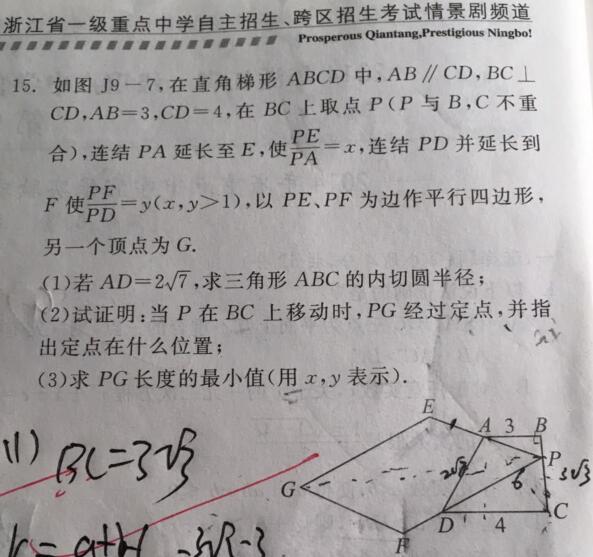 浙江省一级重点中学自主招生、跨区招生考试情景剧频道
Prosperous Qiantang,Prestigious Ningbo!
15. 如图 J9-7,在直角梯形 ABCD 中,AB∥CD,BC⊥
CD,AB=3,CD=4,在 BC 上取点 P(P 与 B,C 不重
合),连结 PA 延长至 E,使PE/PA=x,连结 PD 并延长到
F 使PF/PD=y(x,y>1),以 PE、PF 为边作平行四边形,
另一个顶点为 G.
(1)若 AD=2√7,求三角形 ABC 的内切圆半径;
(2)试证明:当 P 在 BC 上移动时,PG 经过定点,并指
出定点在什么位置;
(3)求 PG 长度的最小值(用 x,y 表示).
E A 3 B
P
G
D 4 C
F
2√7 6 3√3
(1) BC=3√3